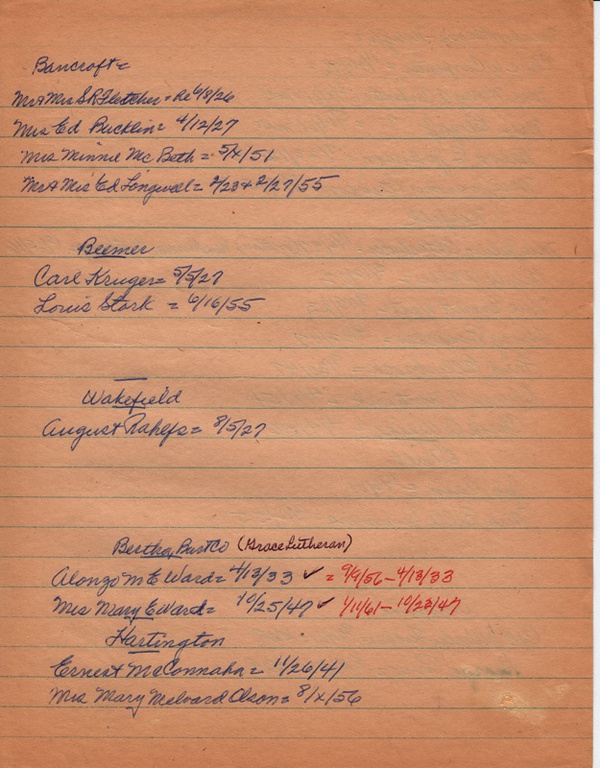 Bancroft =
Mr & Mrs S R Fletcher = Re 6/8/26
Mrs Ed Bucklin = 4/12/27
Mrs Minnie Mc Beth = 5/x/51
Mr & Mrs Ed Longwell = 2/23 + 2/27/55
Beemer
Carl Kruger = 5/5/27
Louis Stark = 6/16/55
Wakefield
August = 8/5/27
Bertha Co (Grace Lutheran)
Alonzo M E Ward = 4/13/33 ✓ = 9/9/56 – 4/13/33
Mrs Mary E Ward = 10/25/47 ✓ 1/11/61 – 10/23/47
Hartington
Ernest McConnaha = 11/26/41
Mrs Mary Olson = 8/x/56